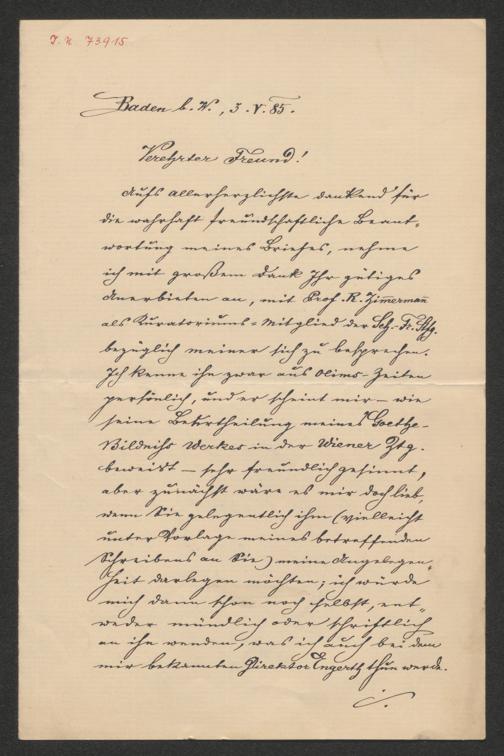 J. N. 73915
Baden b. W., 3. V. 85.
Verehrter Freund!
Aufs allerherzlichste dankend für
die wahrhaft freundschaftliche Beant-
wortung meines Briefes, nehme
ich mit großem Dank Ihr gütiges
Anerbieten an, mit Prof. R. Zimmermann
als Kuratoriums-Mitglied der Sch.-Fr. Stfg.
bezüglich meiner sich zu besprechen.
Ich kenne ihn zwar aus Olims-Zeiten
persönlich, und er scheint mir – wie
seine Beurtheilung meines Goethe-
Bildniß Werkes in der Wiener Ztg.
beweist – sehr freundlich gesinnt,
aber zunächst wäre es mir doch lieb,
wenn Sie gelegentlich ihm (vielleicht
unter Vorlage meines betreffenden
Schreibens an Sie) meine Angelegen-
heit darlegen möchten; ich würde
mich dann schon noch selbst, ent-
weder mündlich oder schriftlich
an ihn wenden, was ich auch bei dem
mir bekannten Direktor Engerth thun werde.